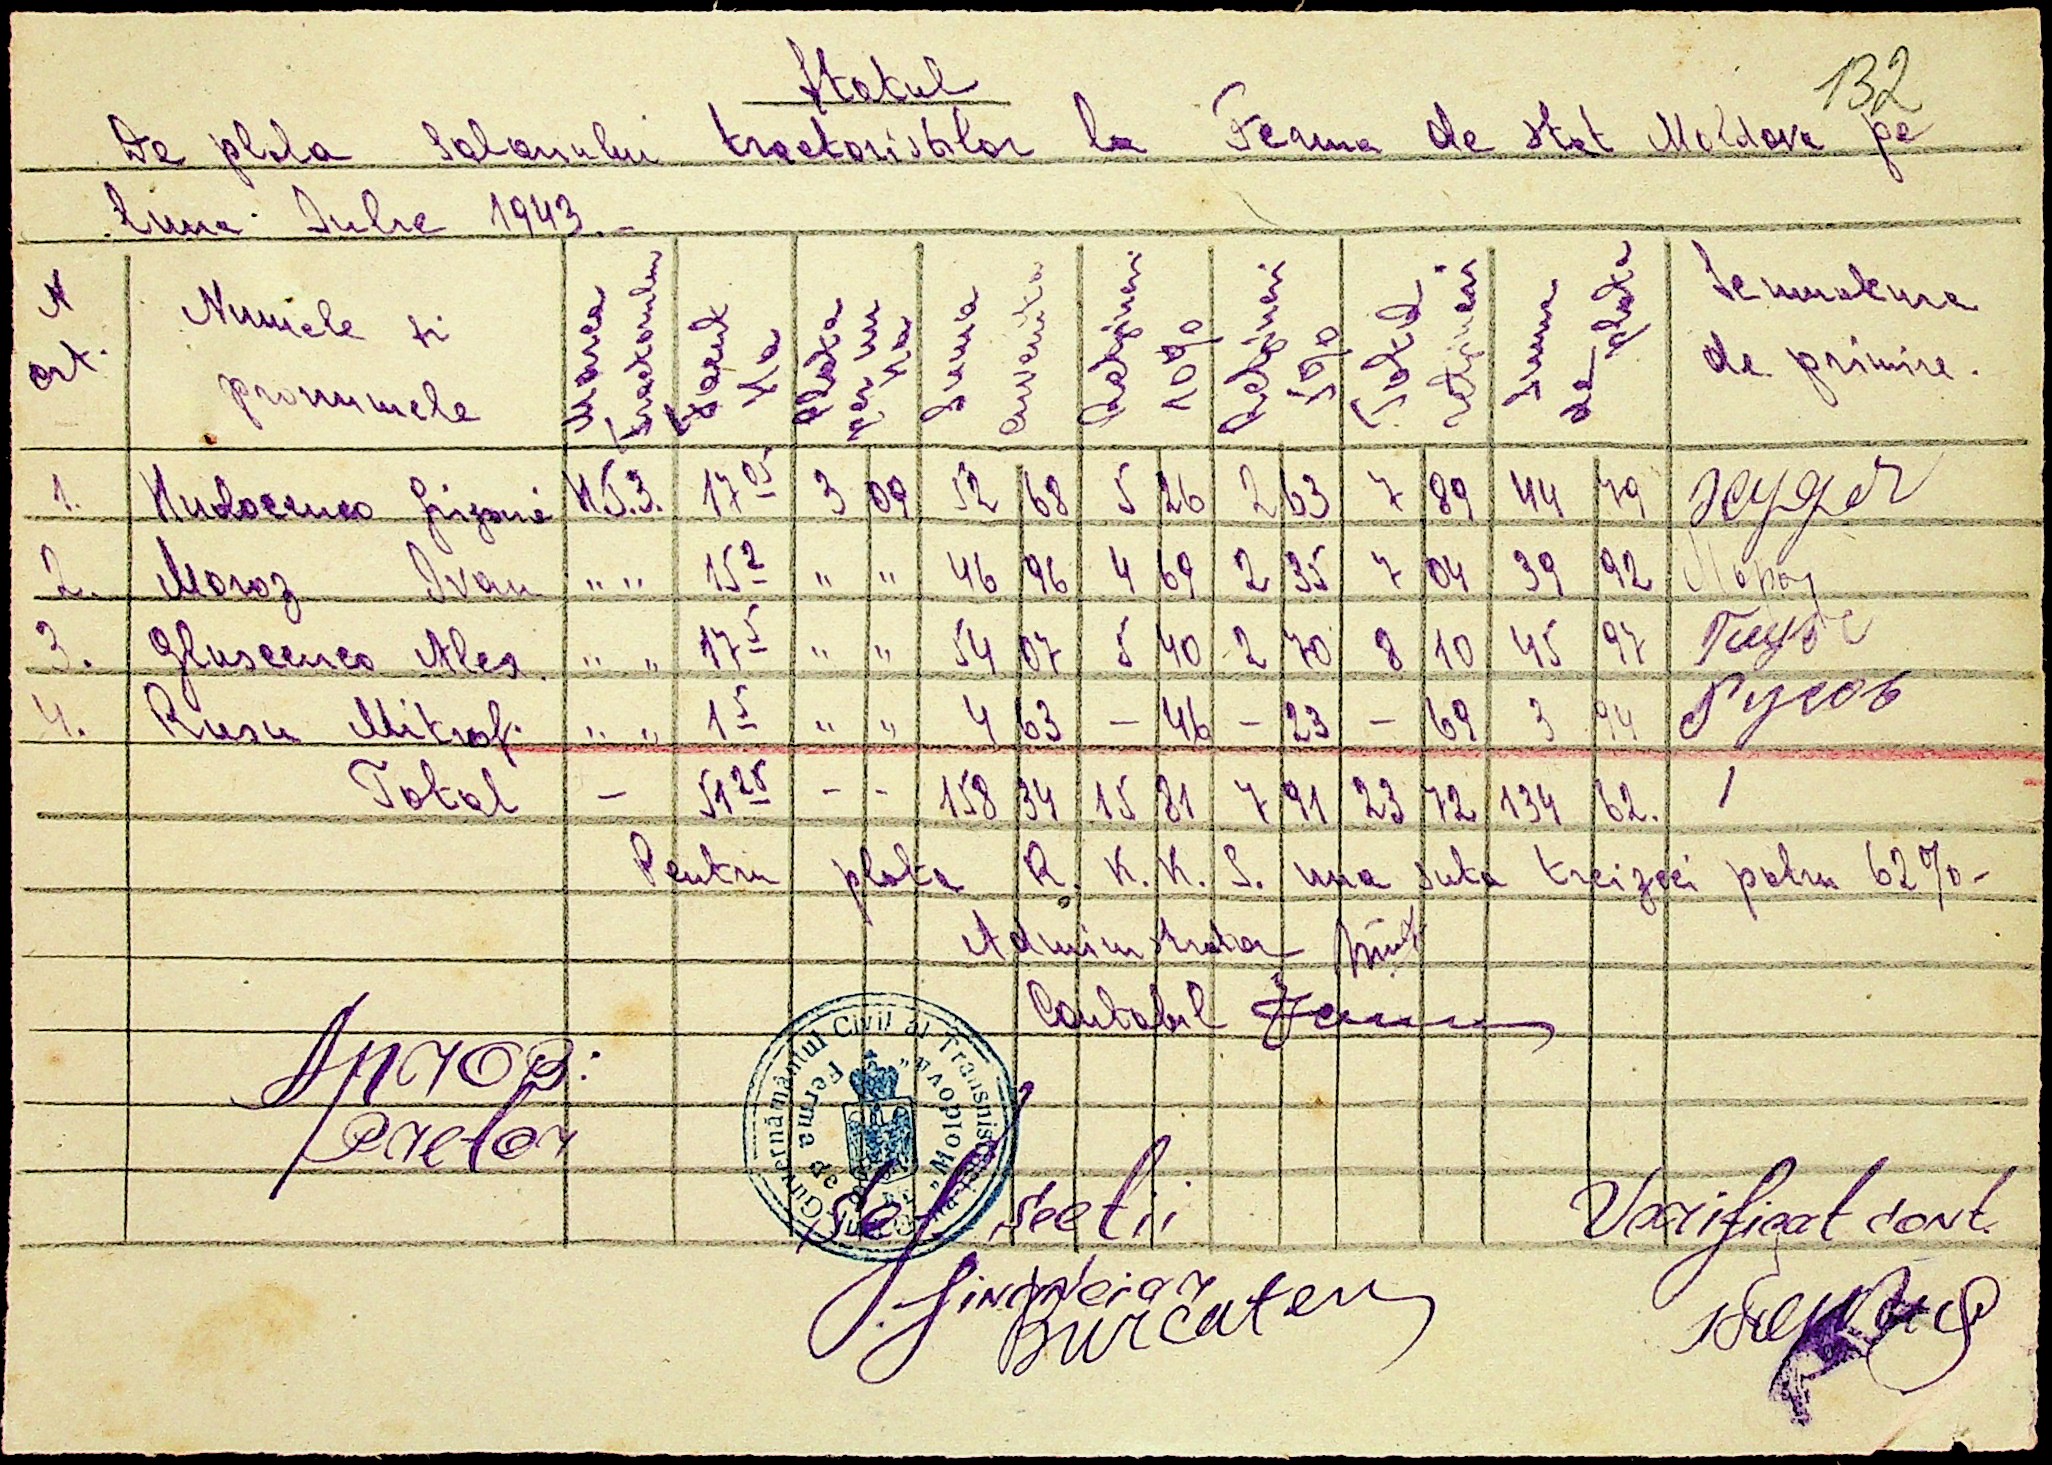 132
Statul
De plata salarului tractoristilor la Ferma de stat Moldova pe
luna Iulie 1943.-
N ort. Numele si pronumele Marca tractorului Harat Ha Plata per un Ha Suma cuvenita Retineri 10% Retineri 5% Total retineri Suma de plata Semnatura de primire.
1. Hudocenco Grigorie H.T.З. 17 05 3 09 52 68 5 26 2 63 7 89 44 79
2. Moroz Ivan " " 15 2 " " 46 96 4 69 2 35 7 04 39 92 Мороз
3. Gluscenco Alex. " " 17 5 " " 54 07 5 40 2 70 8 10 45 97
4. Rusu Mitrof. " " 1 5 " " 4 63 - 46 - 23 - 69 3 94 Русов
Total - 51 25 - - 158 34 15 81 7 91 23 72 134 62.
Pentru plata R. K. K. S. una suta treizeci patru 62%-
Administrator
Contabil
Aprob:
Pretor
Guvernământul Civil al Transnistriei
Ferma de Stat „Moldova"
Șef. Sectii
financiar
Burcateru
Verificat cont.